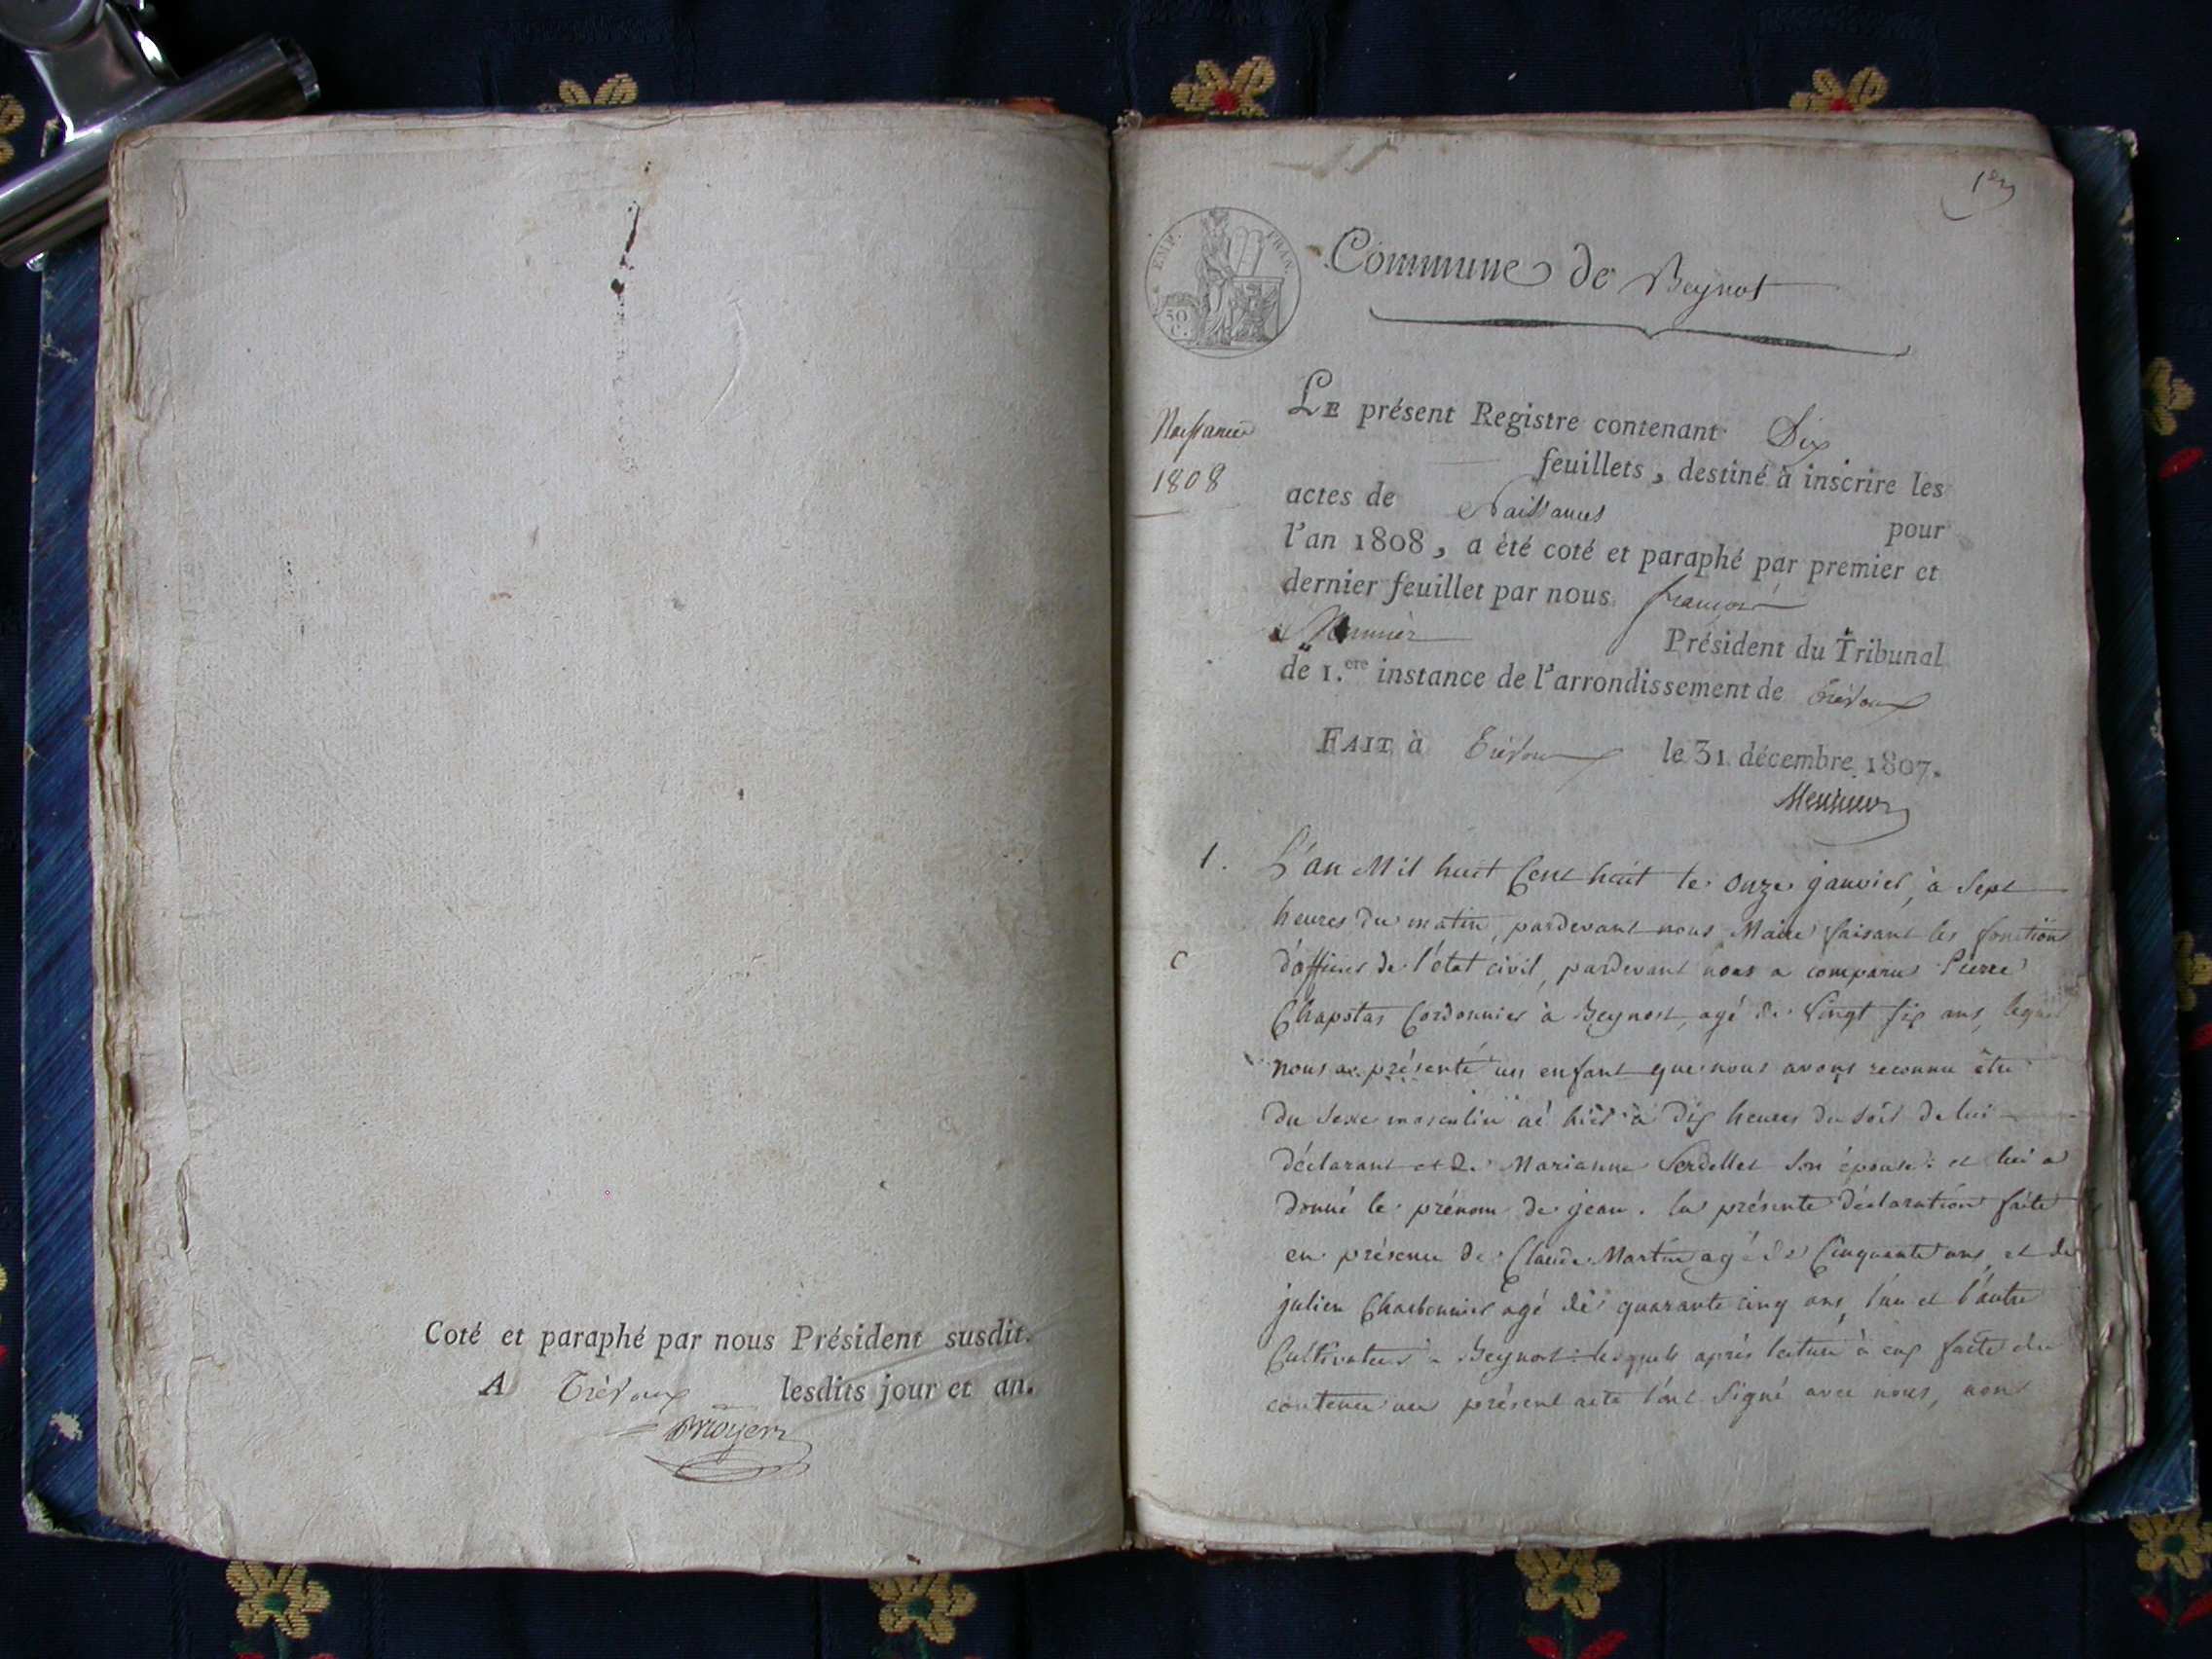 Coté et paraphé par nous Président susdit.
A Trévoux lesdits jour et an.
1er
EMP. FRAN.
50 C.
Commune de Beynost
Naissances
1808
LE présent Registre contenant Dix
feuillets, destiné à inscrire les
actes de Naissances pour
l'an 1808, a été coté et paraphé par premier et
dernier feuillet par nous françois
Président du Tribunal
de 1.ere instance de l'arrondissement de Trévoux
FAIT à Trévoux le 31 décembre 1807.
1. L'an Mil huit Cent huit le onze janvier, à Sept
heures du matin, pardevant nous Maire faisant les fonctions
d'officier de l'état civil, pardevant nous a comparu Pierre
Chapotas Cordonnier à Beynost, agé de Vingt six ans, lequel
nous a présenté un enfant que nous avons reconnu être
du Sexe masculin né hier à dix heures du soir de lui
déclarant et de Marianne son épouse : et lui a
donné le prénom de jean. la présente déclaration faite
en présence de Claude Martin agé de Cinquante ans, et de
julien Charbonnier agé de quarante cinq ans, l'un et l'autre
Cultivateurs à Beynost : lesquels après lecture à eux faite du
contenu au présent acte l'ont Signé avec nous, non